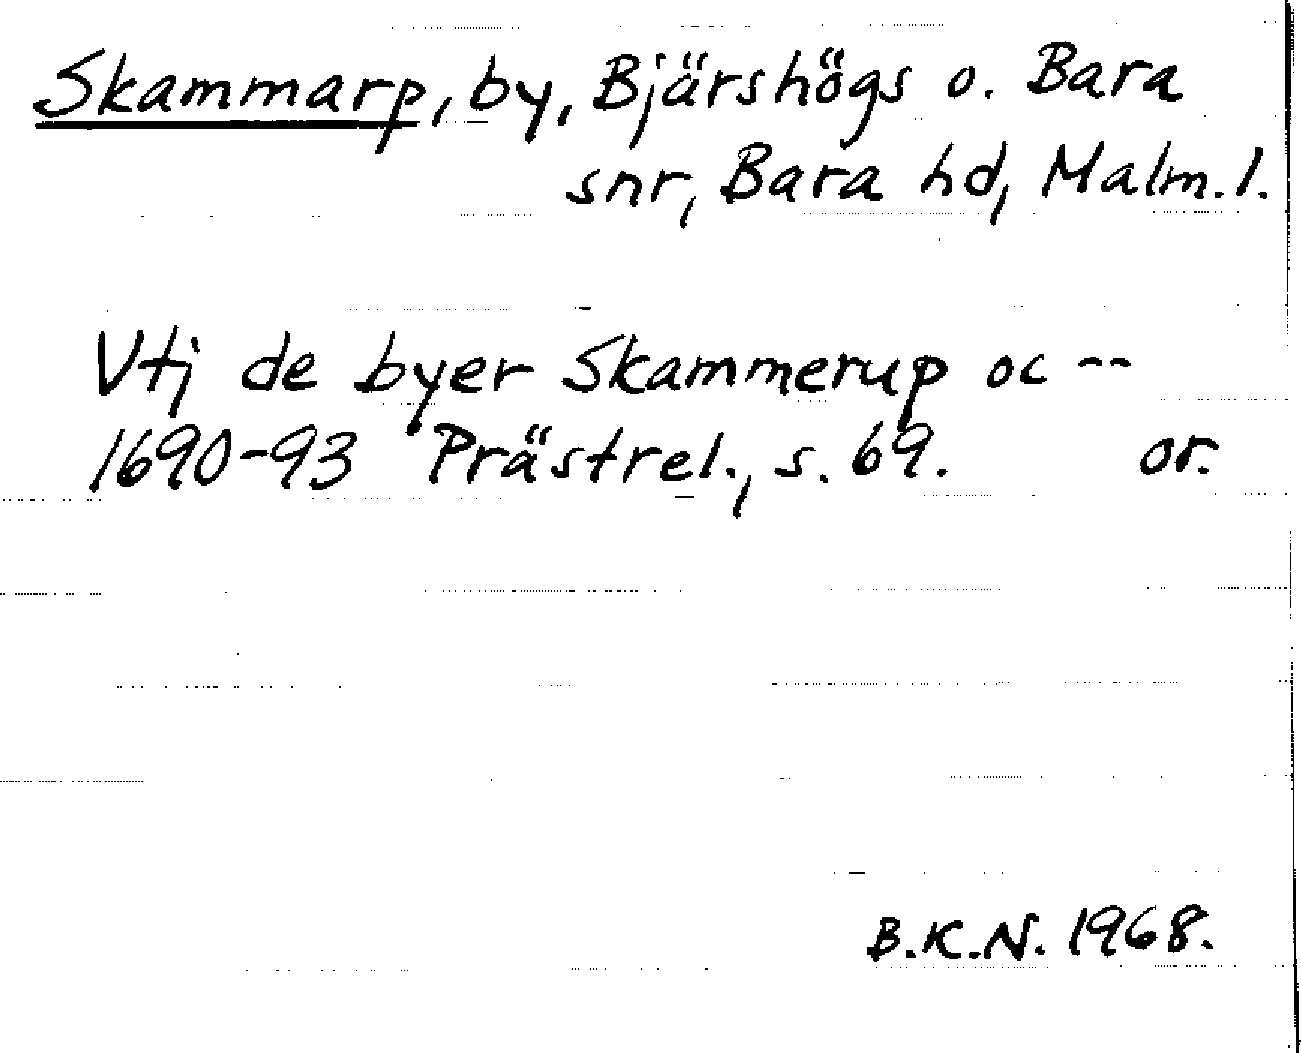 Skammarp, by, Bjärshögs o. Bara
snr, Bara hd, Malm. l.
Vtj de byer Skammerup oc --
1690-93 Prästrel., s. 69. or.
B.K.N. 1968.